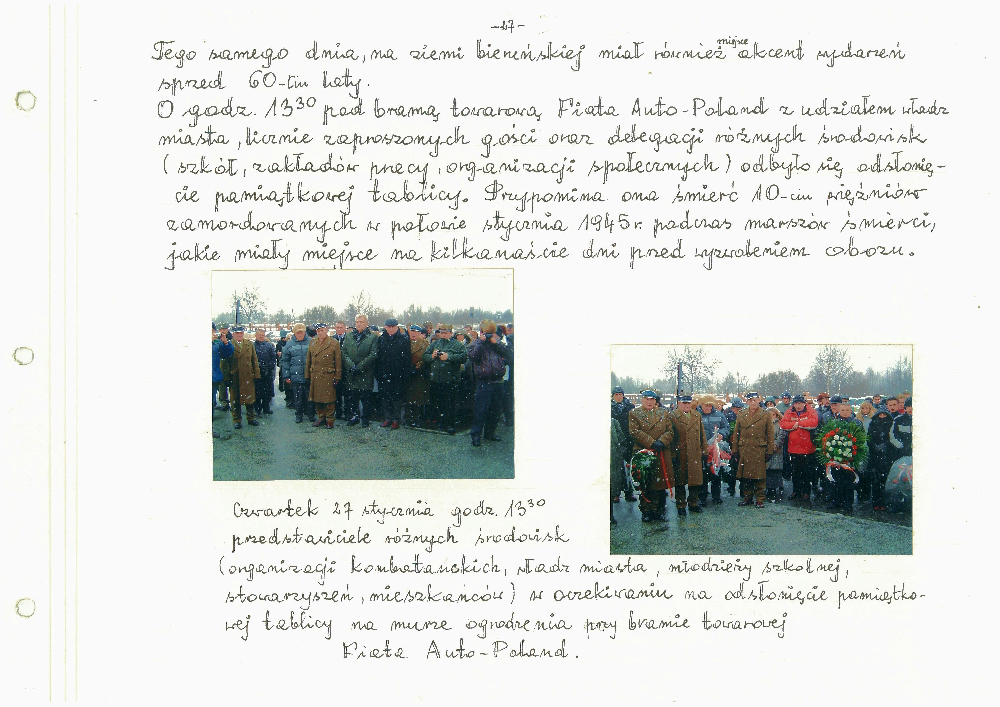 -27-
Tego samego dnia, na ziemi bieruńskiej miał również miejsce akcent wydarzeń
sprzed 60-ciu laty.
O godz. 13³⁰ pod bramą towarową Fiata Auto-Poland z udziałem władz
miasta, licznie zaproszonych gości oraz delegacji różnych środowisk
(szkół, zakładów pracy, organizacji społecznych) odbyło się odsłonię-
cie pamiątkowej tablicy. Przypomina ona śmierć 10-ciu więźniów
zamordowanych w połowie stycznia 1945r. podczas marszów śmierci,
jakie miały miejsce na kilkanaście dni przed wyzwoleniem obozu.
Czwartek 27 stycznia godz. 13³⁰
przedstawiciele różnych środowisk
(organizacji kombatanckich, władz miasta, młodzieży szkolnej,
stowarzyszeń, mieszkańców) w oczekiwaniu na odsłonięcie pamiątko-
wej tablicy na murze ogrodzenia przy bramie towarowej
Fiata Auto-Poland.